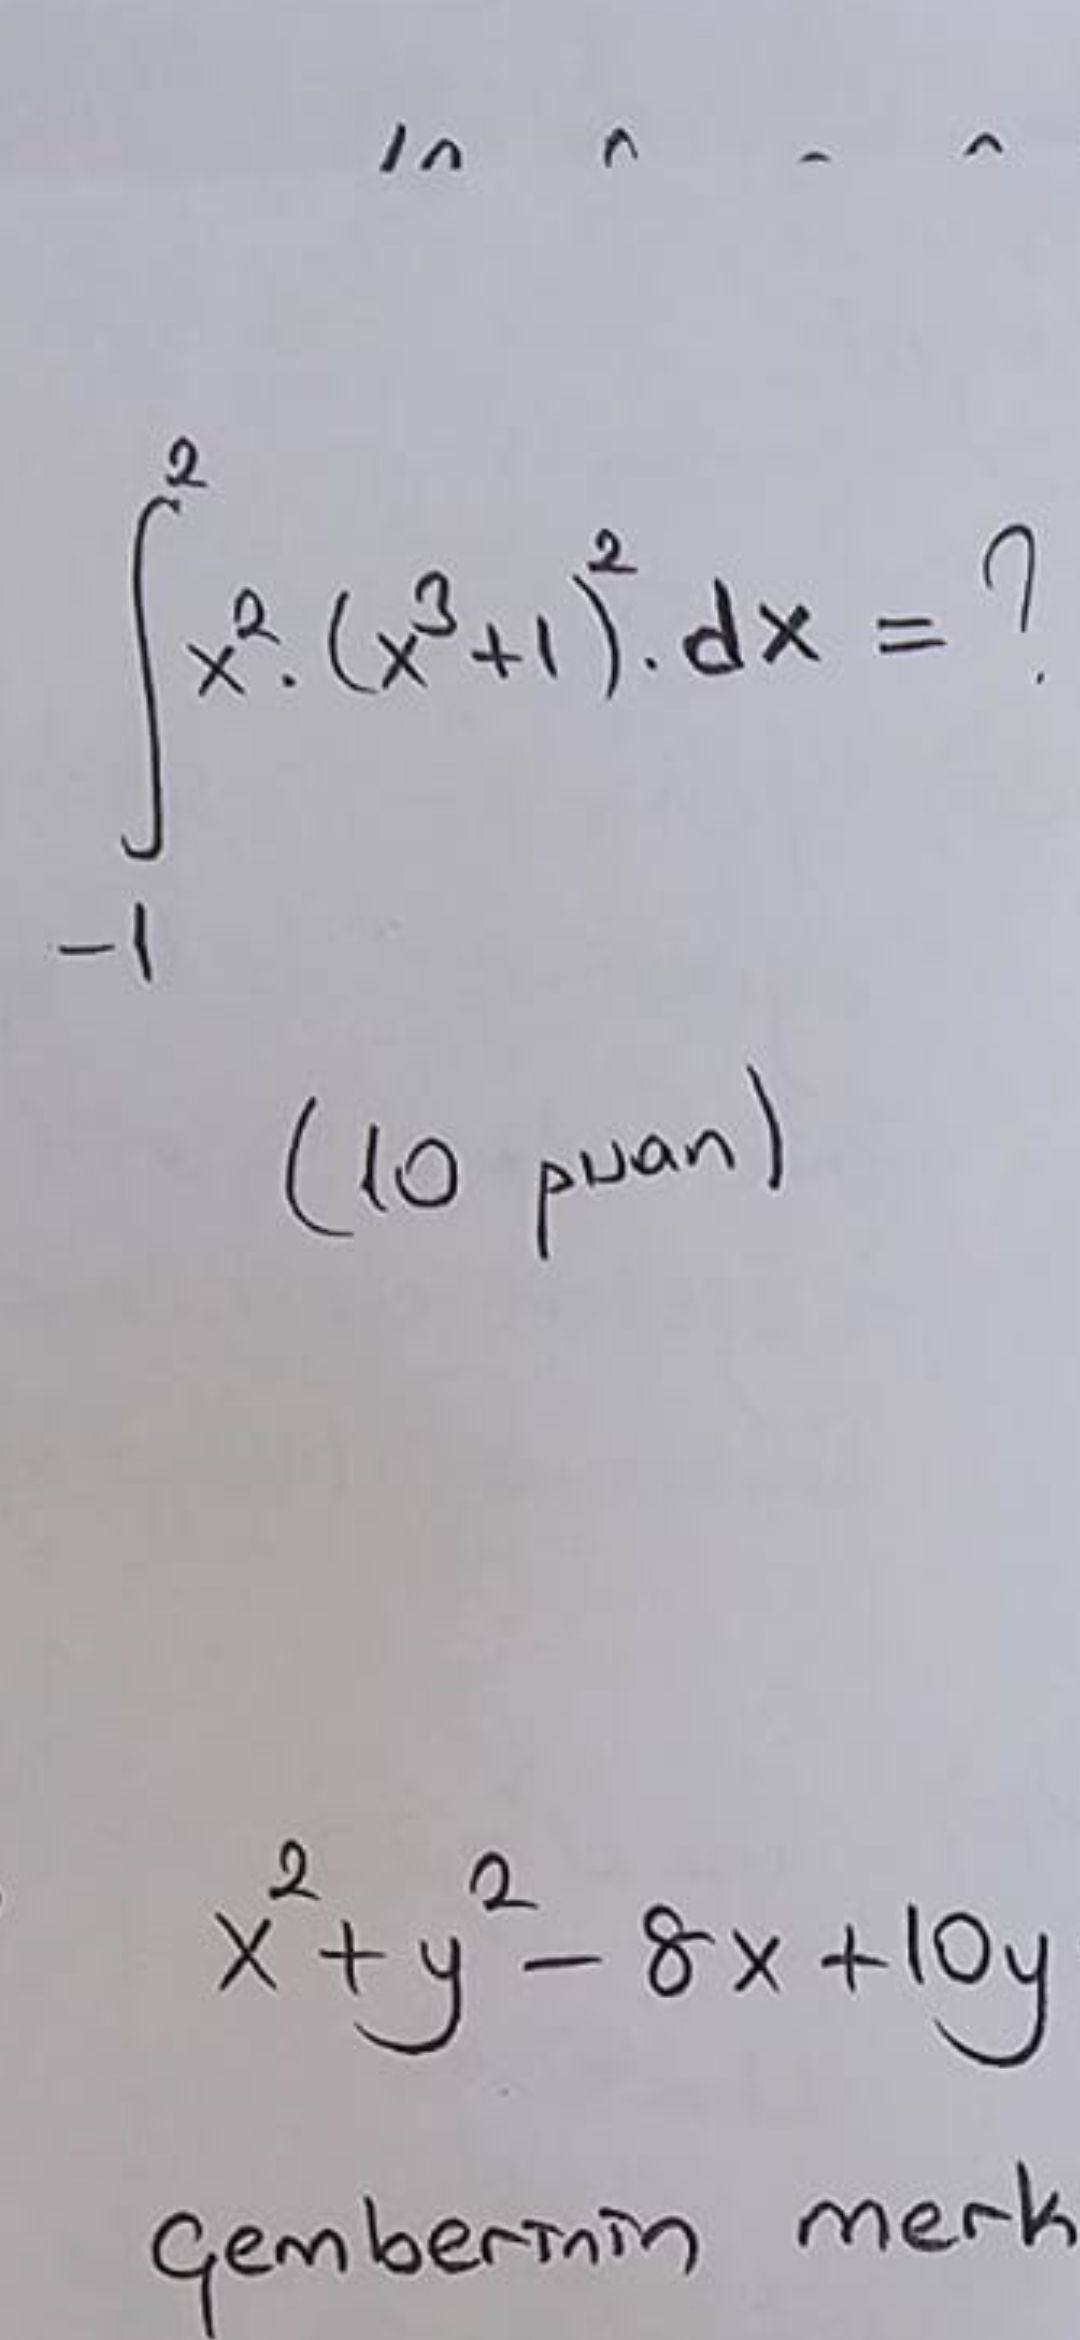 2
∫ x². (x³+1)². dx = ?
-1
(10 puan)
x²+y²-8x+10y
Çemberinin